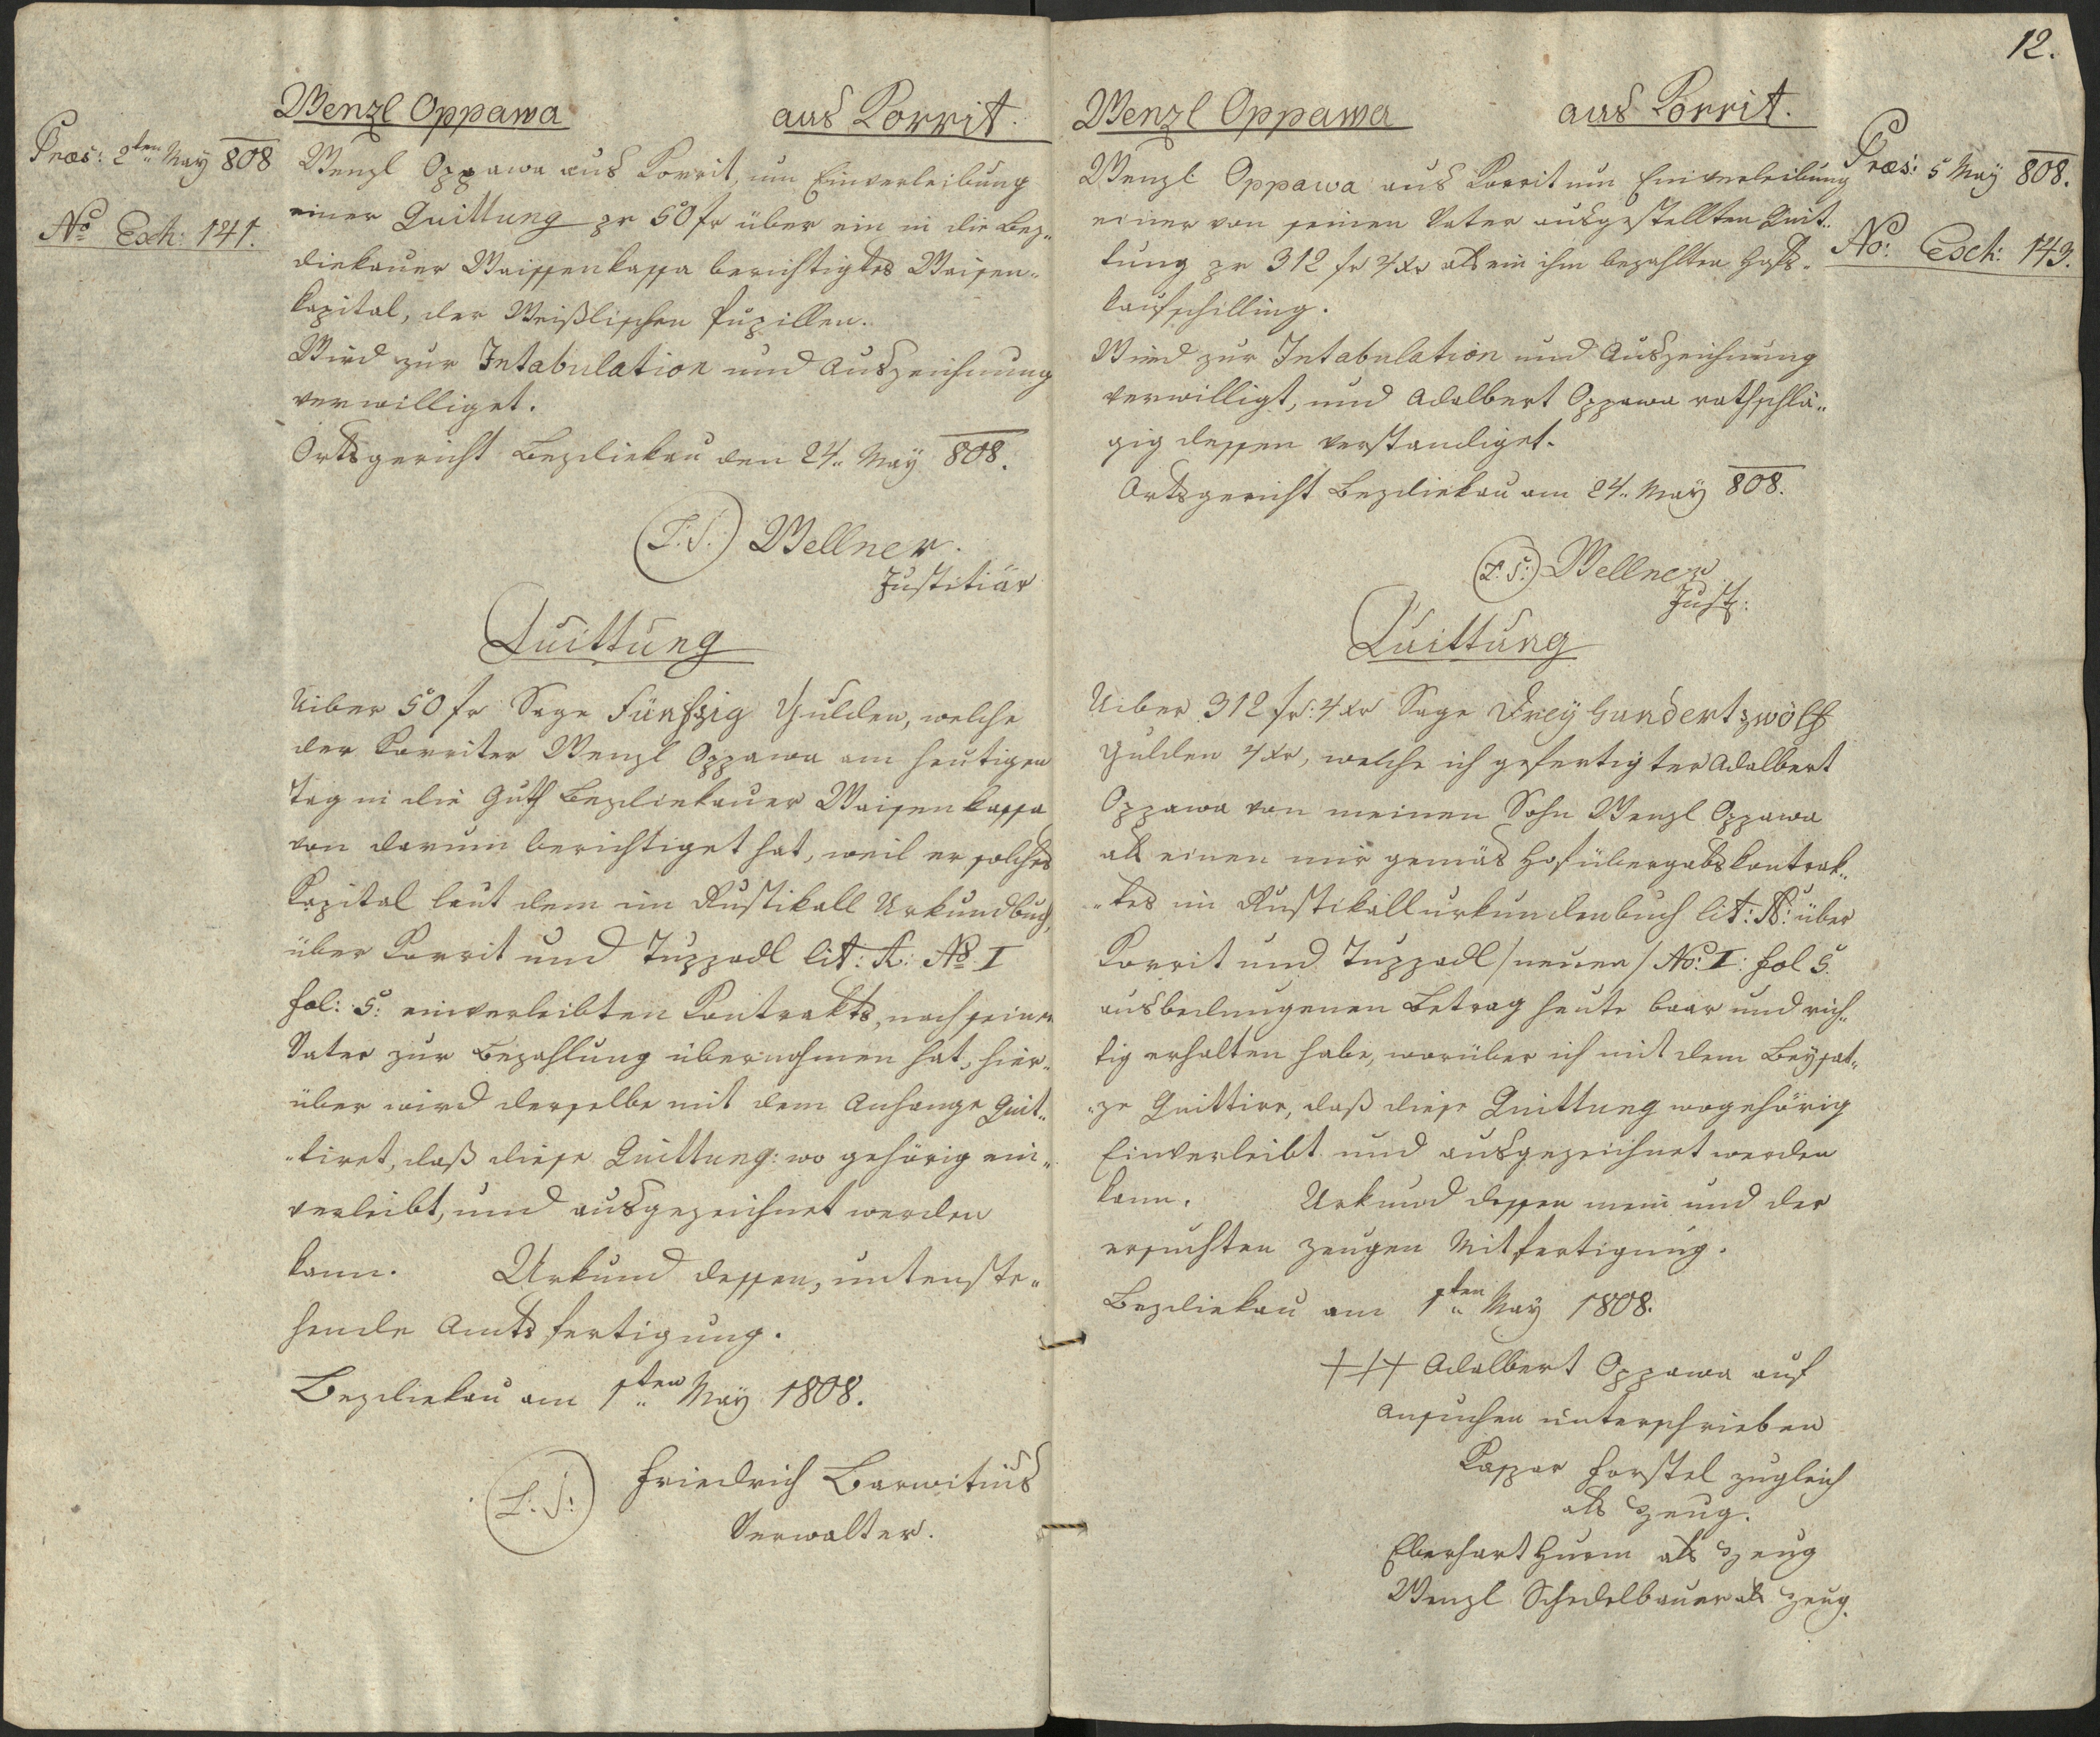 Wenzl Oppawa aus Korrit.
Præs: 2ten May 808
No Exh: 141.
Wenzl Oppawa aus Korrit, um Einverleibung
einer Quittung pr 50 fr über ein in die Bez„
diekauer Waissenkassa berichtigtes Waisen„
kapital, der Weißlischen Pupillen.
Wird zur Intabulation und Auszeichnung
verwilliget.
Ortsgericht Bezdiekau den 24„ May 808.
(L.S.) Wellner.
Justitiär
Quittung
Uiber 50 fr Sage Fünfzig Gulden, welche
der Korriter Wenzl Oppawa am heutigen
Tag in die Guth Bezdiekauer Waisenkassa
von darum berichtiget hat, weil er solches
Kapital laut dem im Rustikall Urkundbuch,
über Korrit und Tuppadl lit: A: No I
fol: 5: einverleibten Kontrakts, nach seinem
Vater zur Bezahlung übernohmen hat, hier„
über wird derselbe mit dem Anhange Quit„
„tiret, daß diese Quittung: wo gehörig ein„
verleibt, und ausgezeichnet werden
kann. Urkund dessen, untenste„
hende Amtsfertigung.
Bezdiekau am 1ten May 1808.
(L:S:) Friedrich Barwitius
Verwalter.
12.
Wenzl Oppawa aus Korrit.
Præs: 5 May 808.
No: Exh: 143.
Wenzl Oppawa aus Korrit um Einverleibung
einer von seinen Vater ausgestellten Quit„
tung pr 312 fr 4 xr als ein ihm bezahlten Hofs„
kaufschilling.
Wird zur Intabulation und Auszeichnung
verwilligt, und Adalbert Oppawa rathschlä„
gig dessen verstandiget.
Ortsgericht Bezdiekau am 24„ May 808.
(L:S:) Wellner
Just:
Quittung
Uiber 312 fr: 4 xr Sage Dreyhundertzwölf
Gulden 4 xr, welche ich gefertigter Adalbert
Oppawa von meinen Sohn Wenzl Oppawa
als einen mir gemäs Hofübergabskontrak„
„tes im Rustikallurkundenbuch lit: A: über
Korrit und Tuppadl /neuen/ No: I: fol 5.
ausbedungenen Betrag heute baar und rich„
tig erhalten habe, worüber ich mit dem Beysat„
„ze Quittire, daß diese Quittung wogehörig
Einverleibt und ausgezeichnet werden
kann. Urkund dessen mein und der
ersuchten Zeugen Mitfertigung.
Bezdiekau am 1ten May 1808.
+++ Adalbert Oppawa auf
Ansuchen unterschrieben
Kaspar Forstel zugleich
als Zeug.
Eberhart Hurm als Zeug
Wenzl Schedelbauer als Zeug.